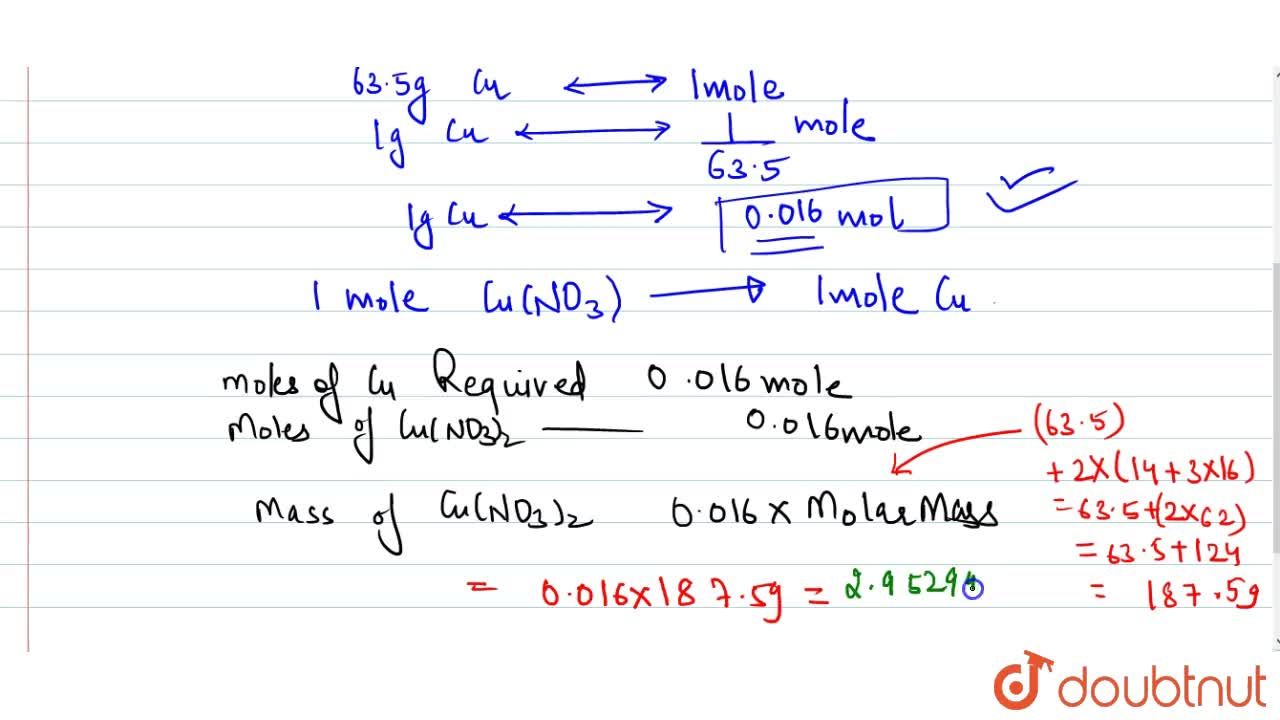 63.5g Cu ⟷ 1mole
1g Cu ⟷ 1/63.5 mole
1g Cu ⟷ 0.016 mol
1 mole Cu(NO3) ⟶ 1mole Cu
moles of Cu Required 0.016 mole
Moles of Cu(NO3)2 — 0.016mole
(63.5)
+ 2X(14+3X16)
Mass of Cu(NO3)2 0.016 X Molar Mass
= 63.5+(2X62)
= 63.5+124
= 0.016X187.5g = 2.9529
= 187.5g
doubtnut